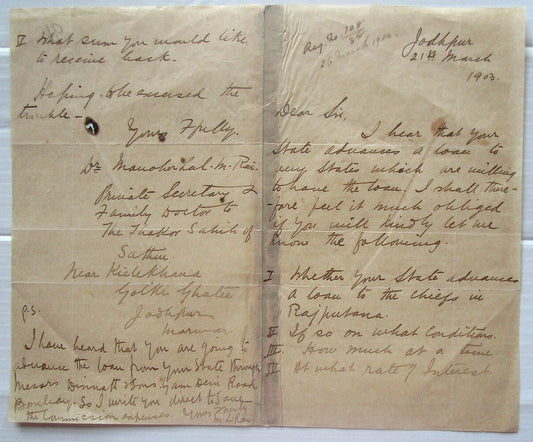 Jodhpur
21st March
1903.
Dear Sir,
I hear that your
State advances a loan to
any States which are willing
to have the loan, I shall there-
-fore feel it much obliged
if you will kindly let me
know the following.
I Whether your State advances
a loan to the chiefs in
Rajputana.
II If so on what Conditions.
III How much at a time.
IV At what rate of Interest.
V What sum you would like
to receive back.
Hoping to be excused the
trouble –
Yours Ffully.
Dr Manoharlal. M. Rai.
Private Secretary &
Family Doctor to
The Thakor Sahib of
Sathin.
Near
Jodhpur
Marwar
P.S.
I have heard that you are going to
advance the loan from your State through
Messrs & Sons Road
Bombay. So I write you direct to save
the Commission expenses. Yours